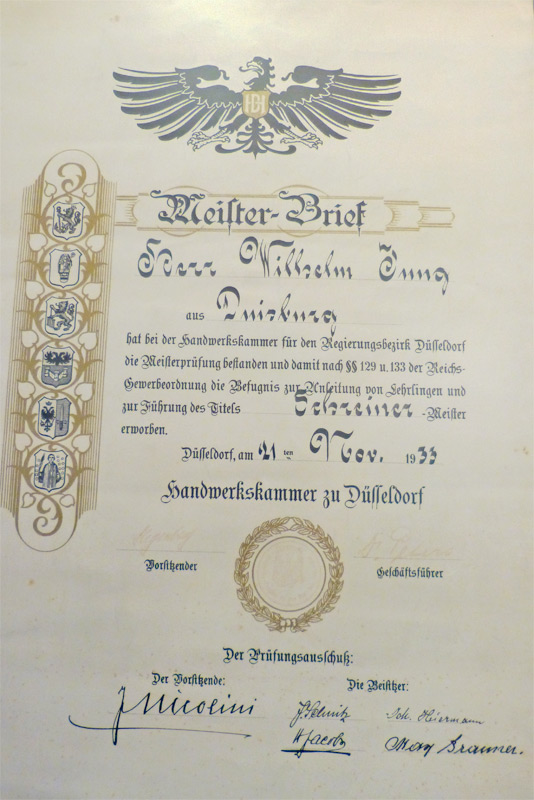 Meister-Brief
Herr Wilhelm Jung
aus Duisburg
hat bei der Handwerkskammer für den Regierungsbezirk Düsseldorf
die Meisterprüfung bestanden und damit nach §§ 129 u. 133 der Reichs-
Gewerbeordnung die Befugnis zur Anleitung von Lehrlingen und
zur Führung des Titels Schreiner-Meister
erworben.
Düsseldorf, am 21ten Nov. 1933
Handwerkskammer zu Düsseldorf
Vorsitzender
Geschäftsführer
Der Prüfungsausschuß:
Der Vorsitzende: Die Beisitzer:
J Nicolini
Joh. Heiermann
Jacobs
Max Brauner.